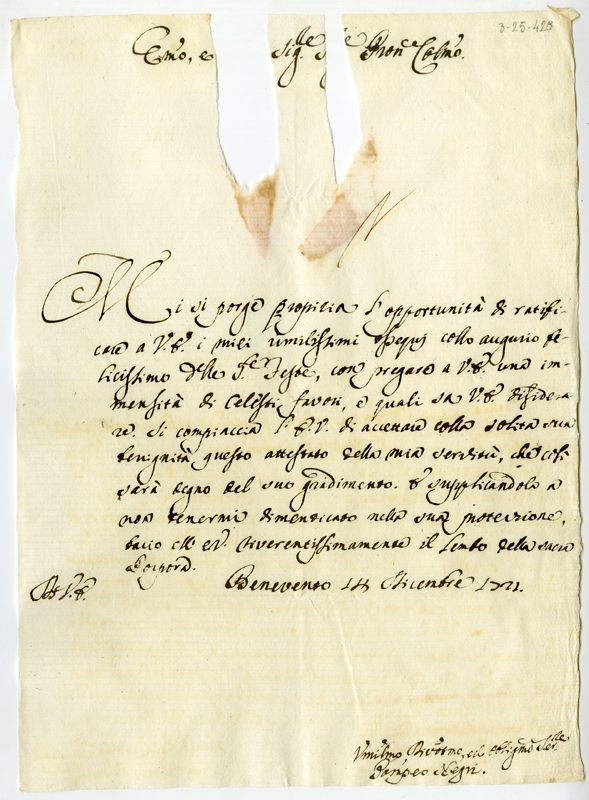 3-25-42
Emo, e Sig.lle Pron.e Colmo.
Mi si porge propizia l'opportunità di ratifi-
care a V.E. i miei umilissimi ossequij collo augurio fe-
licissimo delle S.te Feste, con pregare a V.E. una im-
mensità di Celesti favori, e quali sa V.E. disidera-
re. Si compiaccia l'E.V. di accettare colla solita sua
benignità questo attestato della mia servitù, che così
sarà degno del suo gradimento. E supplicandola a
non tenermi dimenticato nella sua protezione,
bacio all' riverentissimamente il lembo della sacra
Porpora.
Di V.E. Benevento Dicembre 1721.
Umilmo Divotmo, ed obligmo Ser.
Negri.